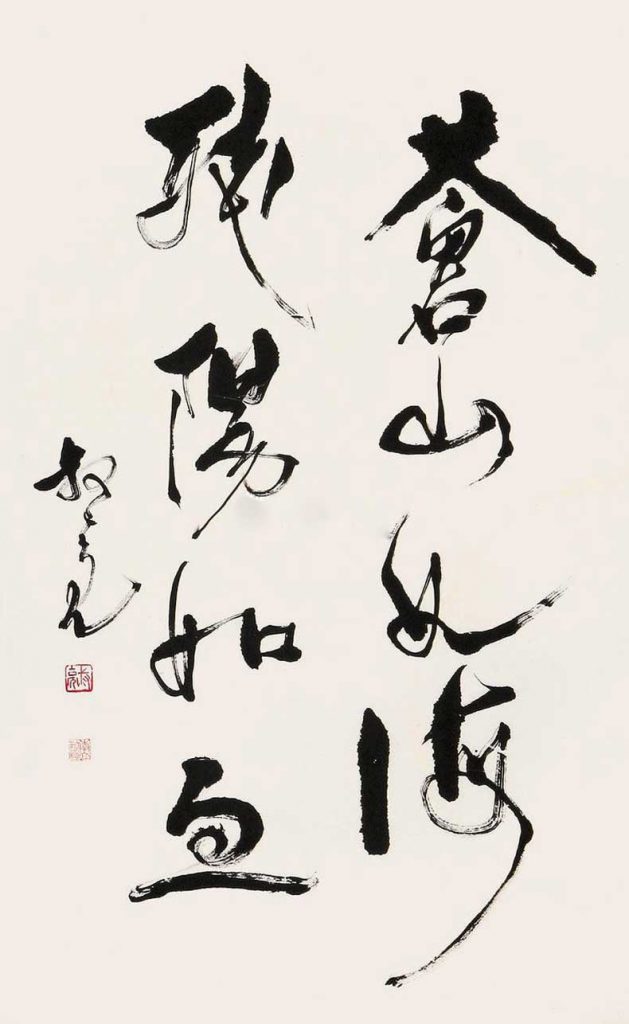 蒼山如海
殘陽如血
叔亮